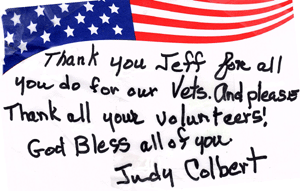 Thank you Jeff for all
you do for our Vets. And please
Thank all your volunteers!
God Bless all of you
Judy Colbert